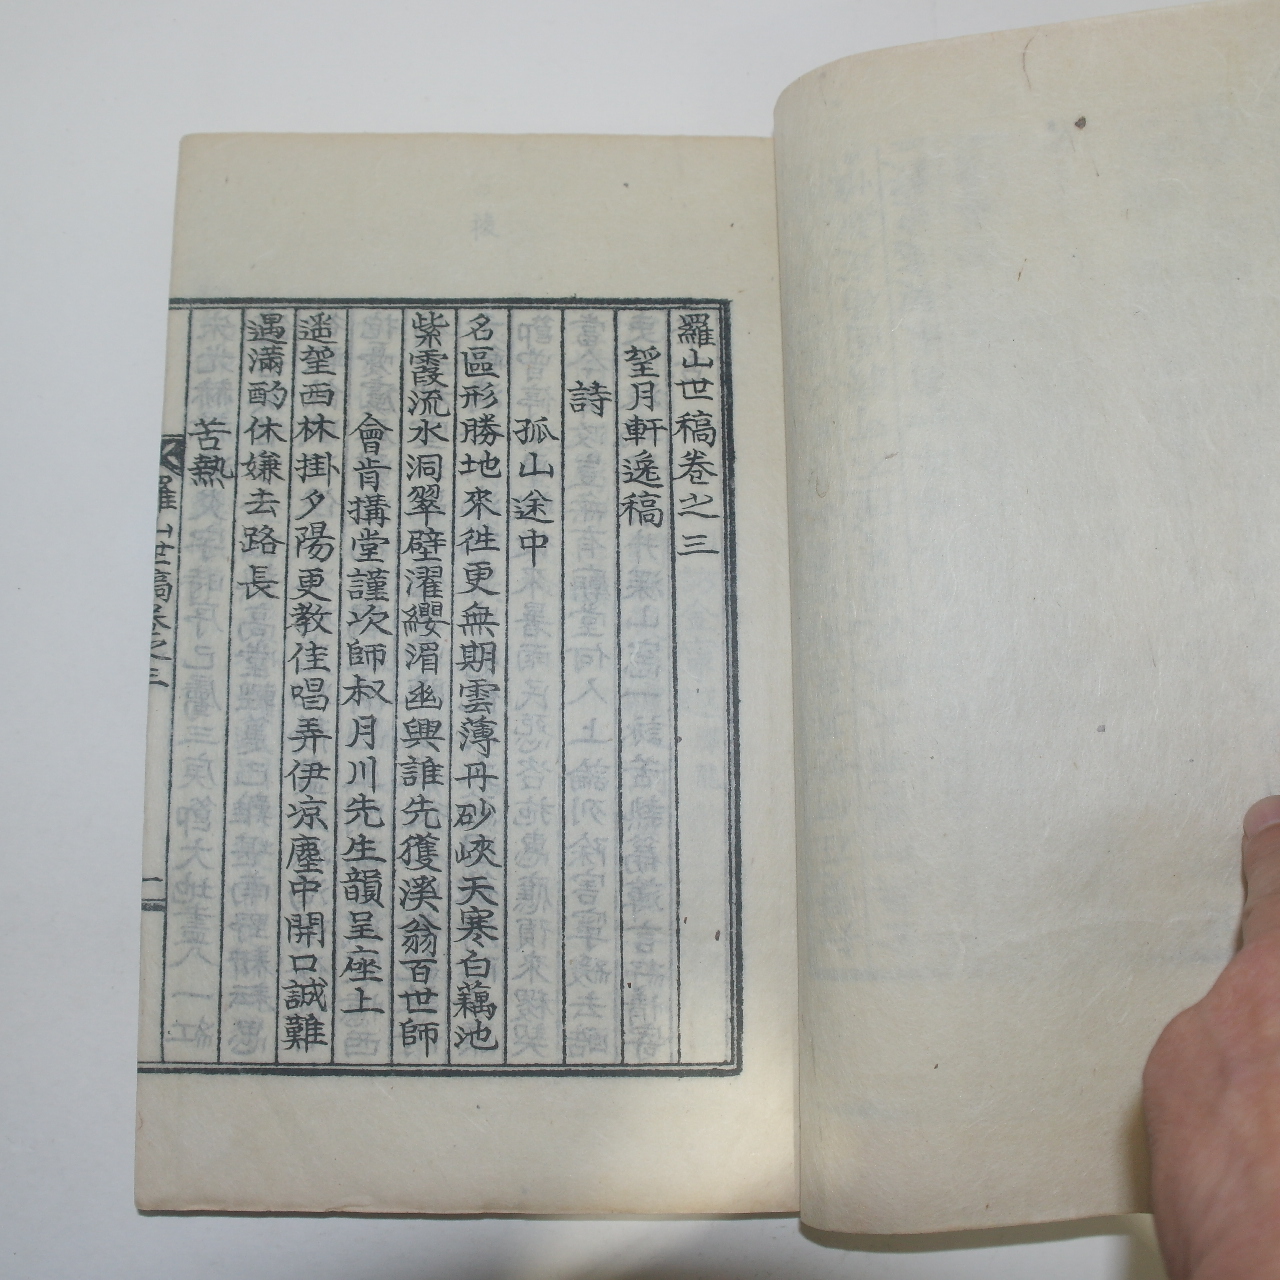 羅山世稿卷之三
望月軒逸稿
詩
孤山途中
名區形勝地來徃更無期雲薄丹砂峽天寒白藕池
紫霞流水洞翠壁濯纓湄幽興誰先獲溪翁百世師
會肯搆堂謹次師叔月川先生韻呈座上
遥望西林掛夕陽更教佳唱弄伊凉塵中開口誠難
遇滿酌休嫌去路長
苦熱
羅山世稿卷之三